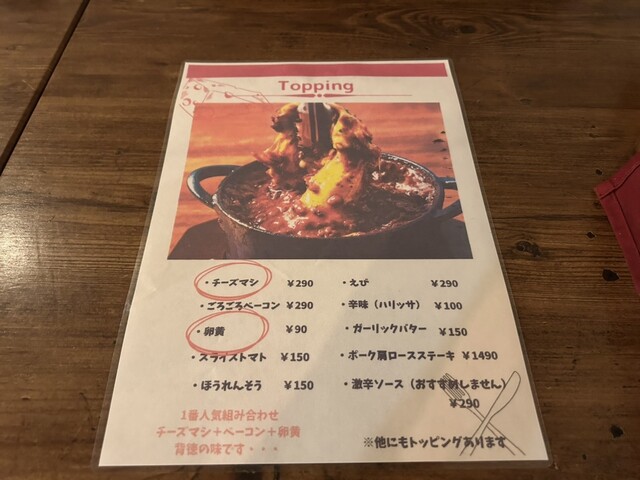 Topping
・チーズマシ ¥290
・ごろごろベーコン ¥290
・卵黄 ¥90
・スライストマト ¥150
・ほうれんそう ¥150
・えび ¥290
・辛味（ハリッサ） ¥100
・ガーリックバター ¥150
・ポーク肩ロースステーキ ¥1490
・激辛ソース（おすすめしません）
¥290
1番人気組み合わせ
チーズマシ＋ベーコン＋卵黄
背徳の味です・・・
※他にもトッピングあります